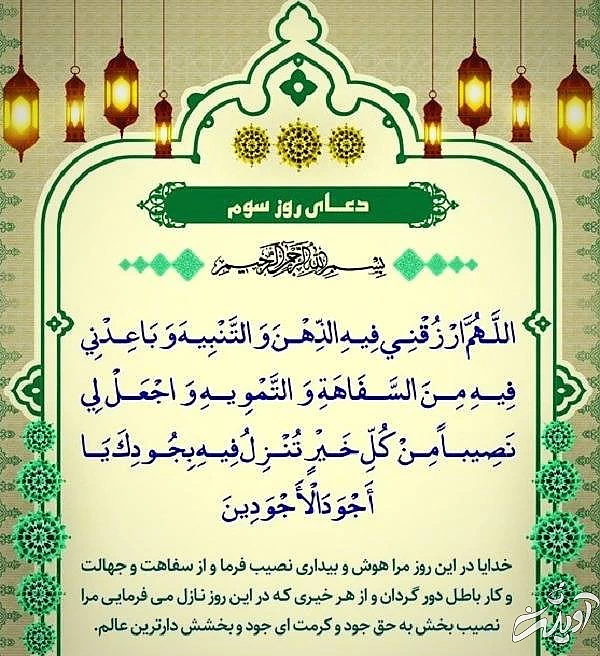 دعای روز سوم
بِسْمِ اللهِ الرَّحْمنِ الرَّحِیمِ
اللَّهُمَّ ارْزُقْنِي فِيهِ الذِّهْنَ وَ التَّنْبِيهَ وَ بَاعِدْنِي
فِيهِ مِنَ السَّفَاهَةِ وَ التَّمْوِيهِ وَ اجْعَلْ لِي
نَصِيباً مِنْ كُلِّ خَيْرٍ تُنْزِلُ فِيهِ بِجُودِكَ يَا
أَجْوَدَ الْأَجْوَدِينَ
خدایا در این روز مرا هوش و بیداری نصیب فرما و از سفاهت و جهالت
و کار باطل دور گردان و از هر خیری که در این روز نازل می فرمایی مرا
نصیب بخش به حق جود و کرمت ای جود و بخشش دارترین عالم.